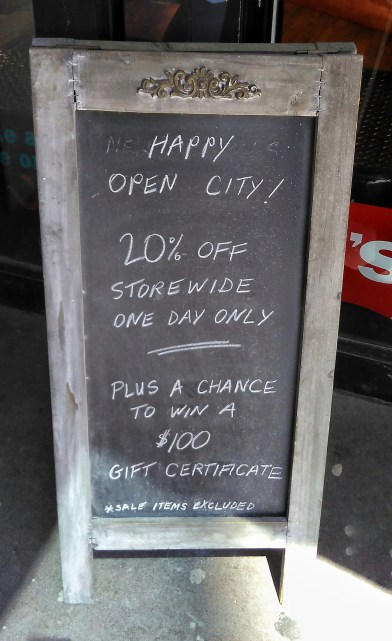 HAPPY
OPEN CITY!
20% OFF
STOREWIDE
ONE DAY ONLY
PLUS A CHANCE
TO WIN A
$100
GIFT CERTIFICATE
*SALE ITEMS EXCLUDED
'S